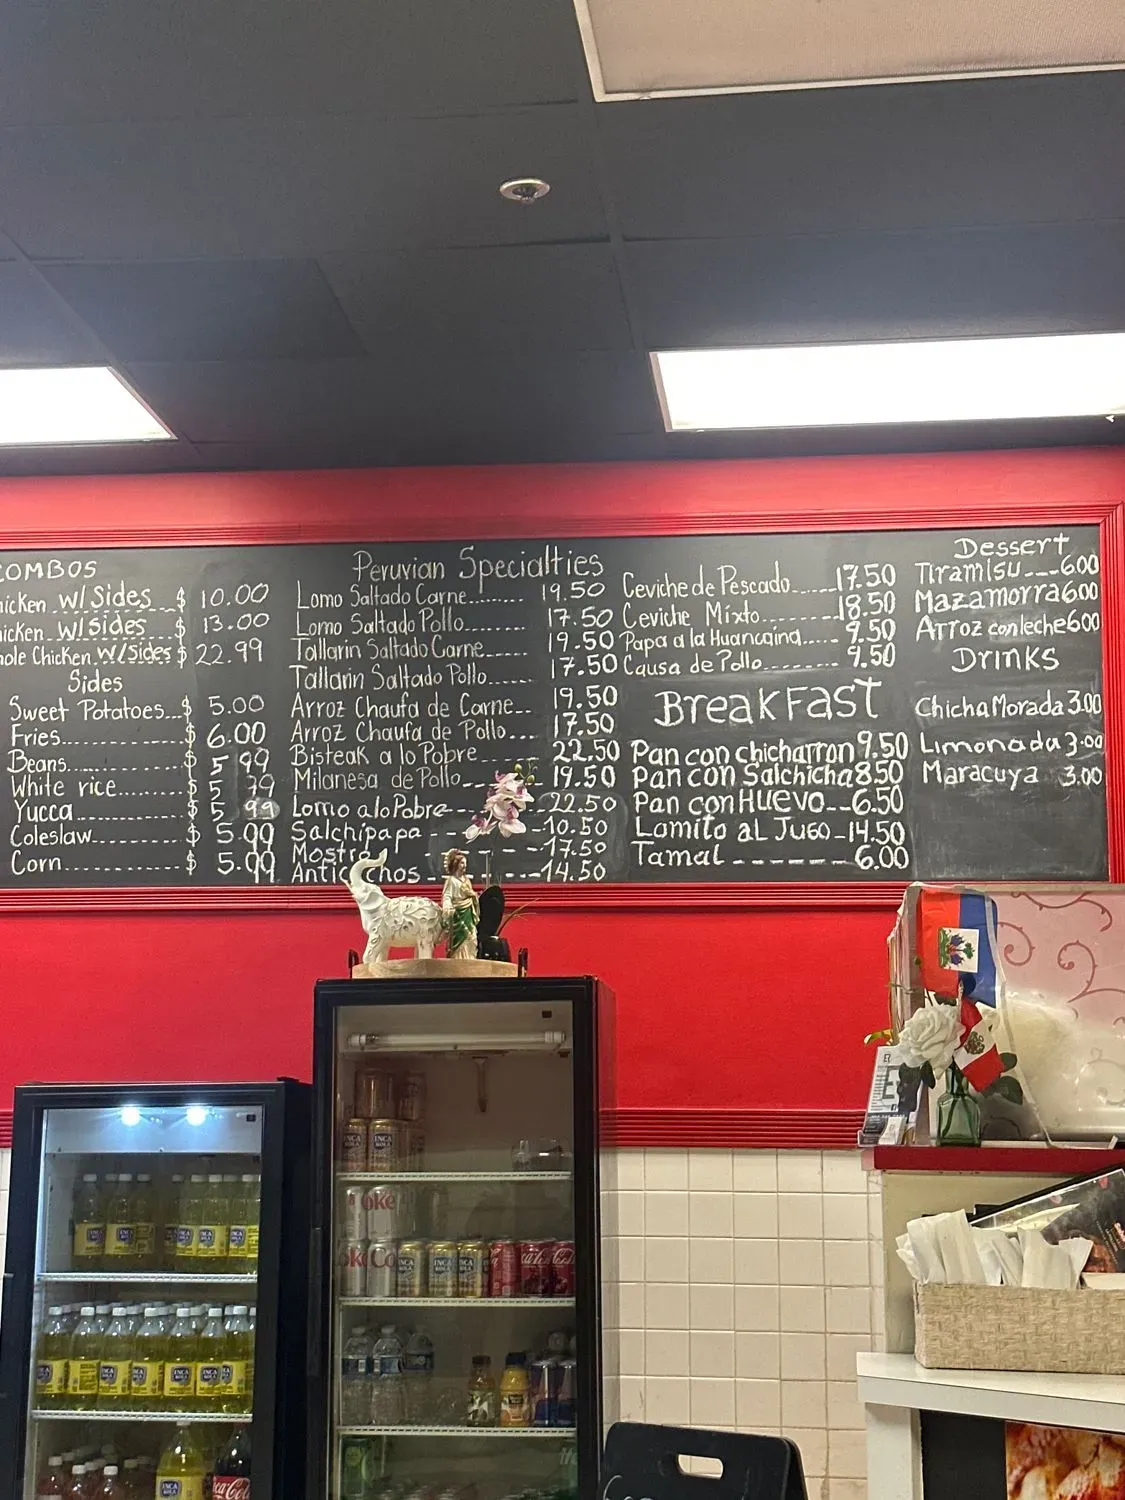 COMBOS
icken w/Sides $ 10.00
icken w/sides $ 13.00
ole Chicken w/sides $ 22.99
Sides
Sweet Potatoes...$ 5.00
Fries...$ 6.00
Beans...$ 5.99
White rice...$ 5.79
Yucca...$ 5.99
Coleslaw...$ 5.99
Corn...$ 5.99
Peruvian Specialties
Lomo Saltado Carne... 19.50
Lomo Saltado Pollo... 17.50
Tallarin Saltado Carne... 19.50
Tallarin Saltado Pollo... 17.50
Arroz Chaufa de Carne... 19.50
Arroz Chaufa de Pollo... 17.50
Bisteak a lo Pobre... 22.50
Milanesa de Pollo... 19.50
Lomo a lo Pobre--- 22.50
Salchipapa ----10.50
Mostr ---17.50
Antic chos---14.50
Ceviche de Pescado...17.50
Ceviche Mixto...18.50
Papa a la Huancaina... 9.50
Causa de Pollo... 9.50
BreakFast
Pan con chicharron 9.50
Pan con Salchicha 8.50
Pan con Huevo--6.50
Lomito al Jugo-14.50
Tamal ------- 6.00
Dessert
Tiramisu---6.00
Mazamorra 6.00
Arroz con leche 6.00
Drinks
Chicha Morada 3.00
Limonada 3.00
Maracuya 3.00
INCA KOLA
INCA KOLA
Coke
Coke
INCA KOLA
Coca-Cola
INCA KOLA
INCA KOLA
Coca-Cola